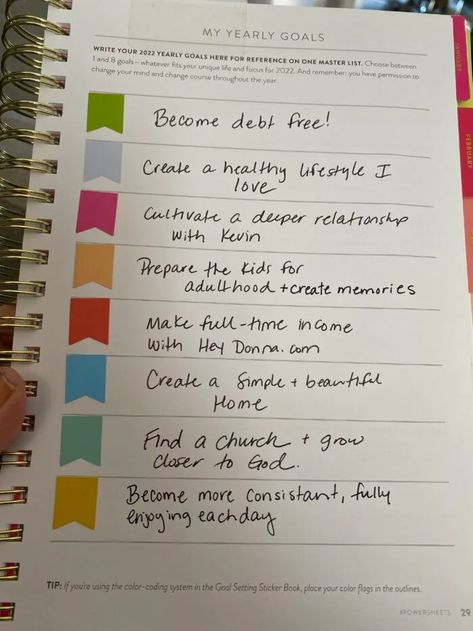 MY YEARLY GOALS
WRITE YOUR 2022 YEARLY GOALS HERE FOR REFERENCE ON ONE MASTER LIST. Choose between
1 and 8 goals—whatever fits your unique life and focus for 2022. And remember: you have permission to
change your mind and change course throughout the year.
Become debt free!
Create a healthy lifestyle I
love
Cultivate a deeper relationship
with Kevin
Prepare the kids for
adulthood + create memories
Make full-time income
with HeyDonna.com
Create a simple + beautiful
Home
Find a church + grow
closer to God.
Become more consistant, fully
enjoying each day
TIP: If you're using the color-coding system in the Goal Setting Sticker Book, place your color flags in the outlines.
#POWERSHEETS 29
JANUARY
FEBRUARY